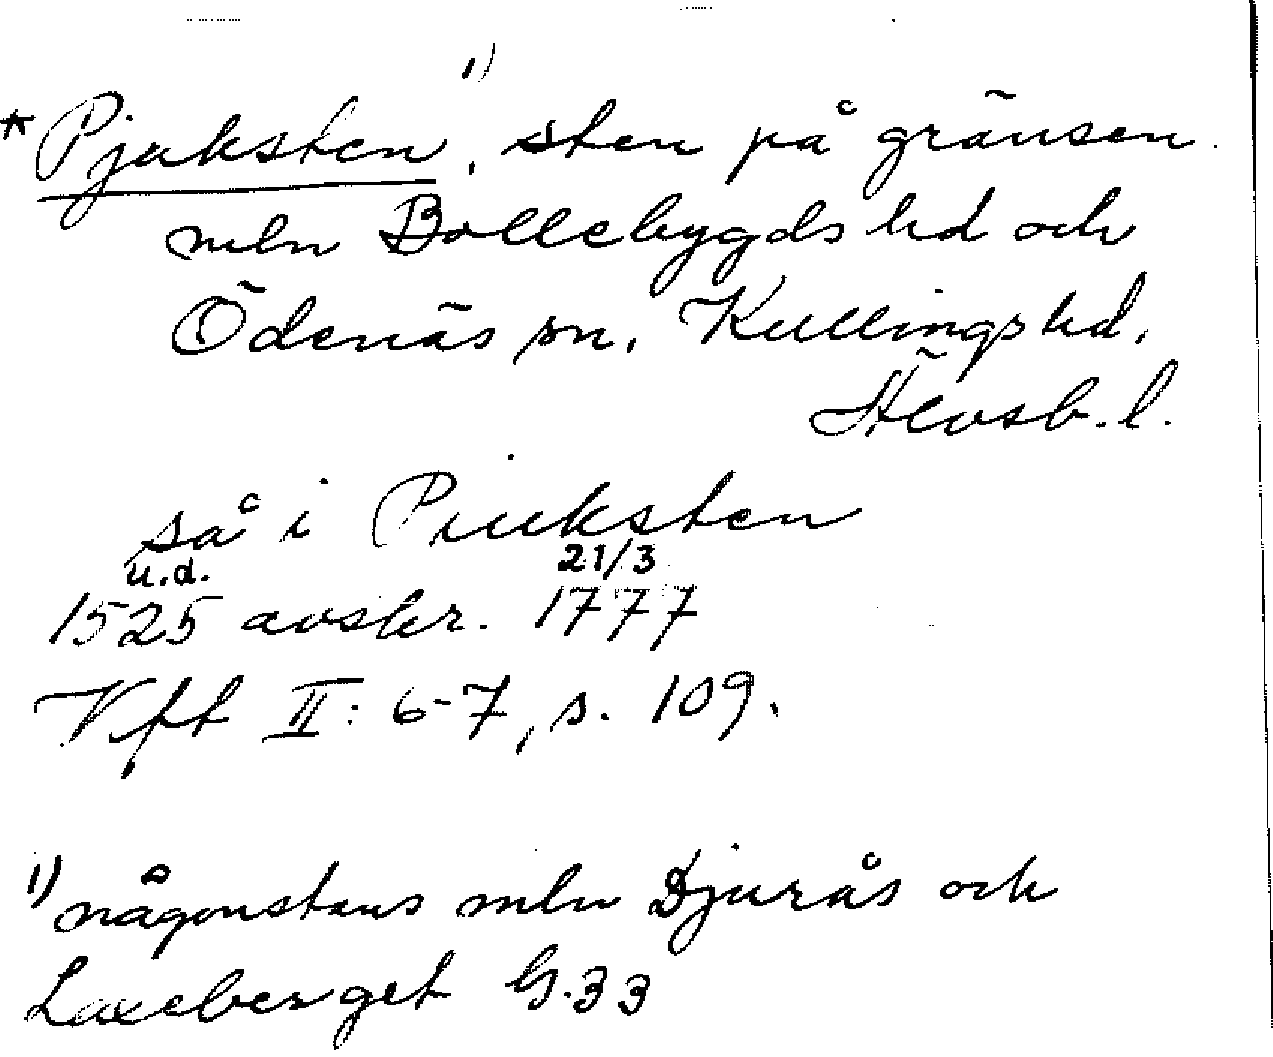 1)
* Pjuksten, sten på gränsen
mln Bollebygds hd och
Ödenäs sn, Kullings hd,
Älvsb. l.
så i Piuksten
u.d. 21/3
1525 avskr. 1777
Vft II: 6-7, s. 109.
1) någonstans mln Djurås och
Laxeberget G.33